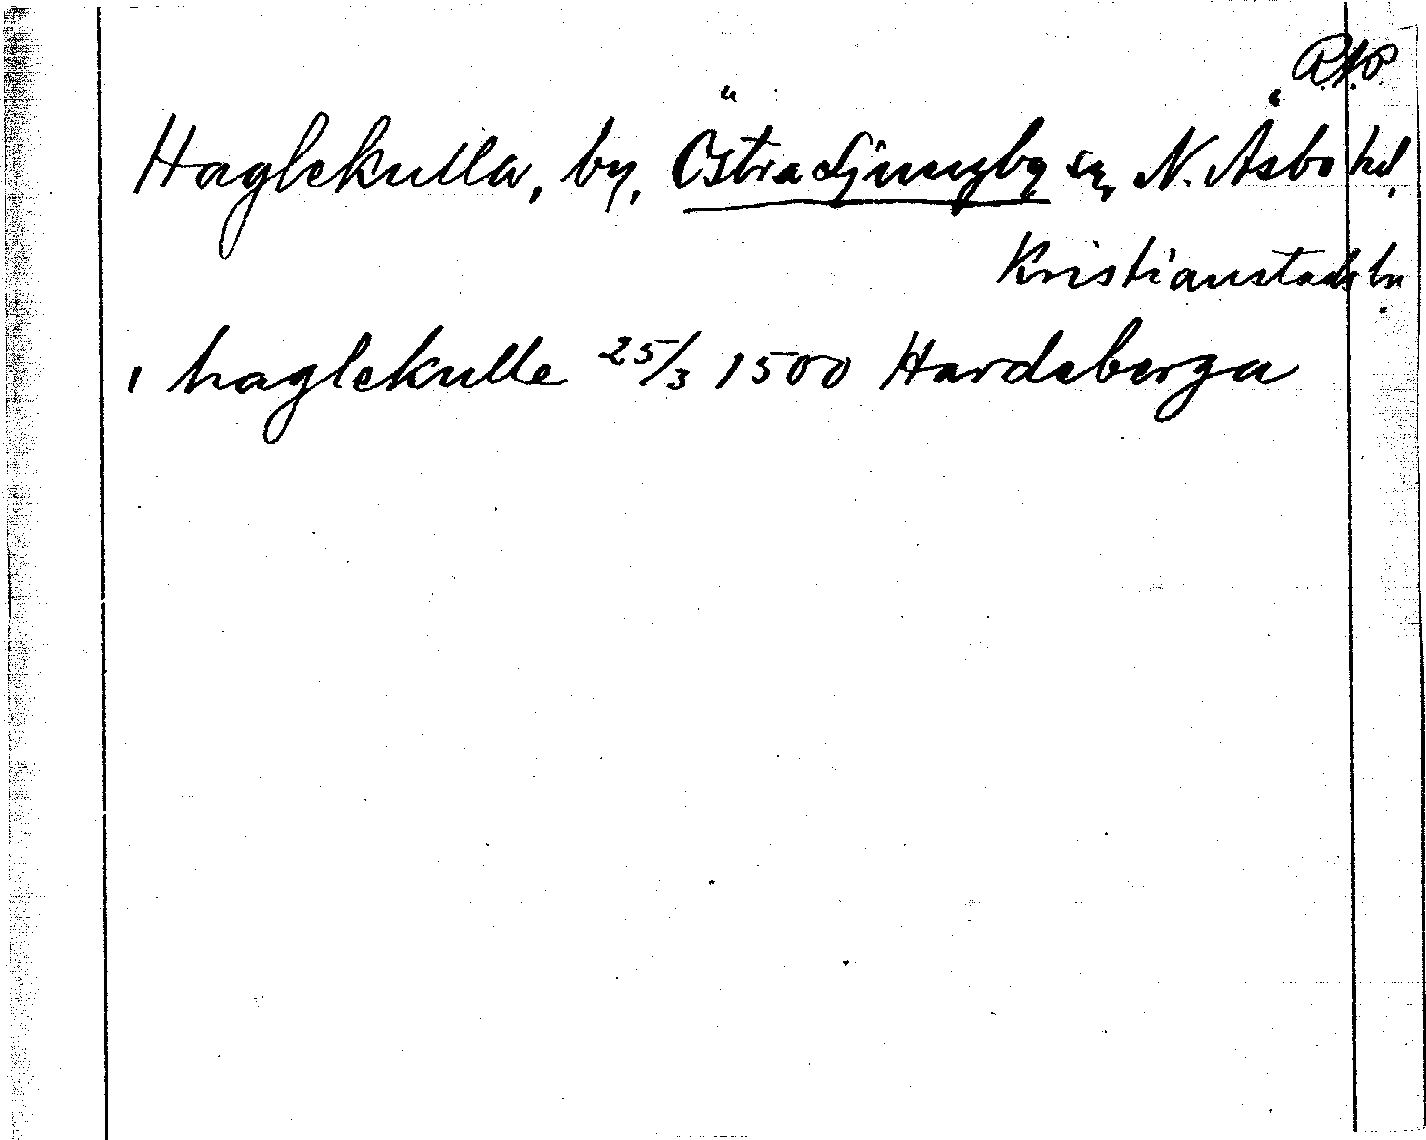 Haglekulla, by, Östra Ljungby sn, N. Åsbo hd,
Kristianstads ln.
i haglekulle 25/3 1500 Hardeberga